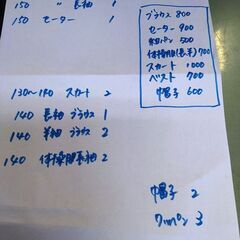 150 〃 長袖 1
150 セーター 1
ブラウス 800
セーター 900
短パン 500
体操服(長・半)700
スカート 1000
ベスト 700
帽子 600
130～140 スカート 2
140 長袖 ブラウス 1
140 半袖 ブラウス 2
140 体操服長袖 2
帽子 2
ワッペン 3